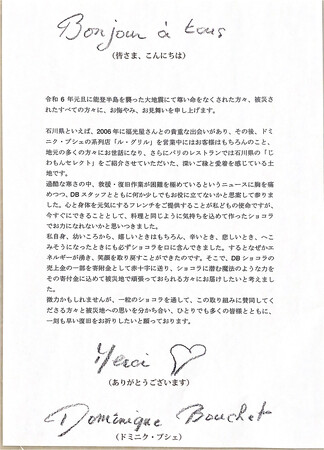 Bonjour à tous
(皆さま、こんにちは)
令和 6 年元旦に能登半島を襲った大地震にて尊い命をなくされた方々、被災さ
れたすべての方々に、お悔やみ、お見舞いを申し上げます。
石川県といえば、2006 年に福光屋さんとの貴重な出会いがあり、その後、ドミニ
ク・ブシェの系列店「ル・グリル」を営業中にはお客様はもちろんのこと、
地元の多くの方々にお世話になり、さらにパリのレストランでは石川県の「じ
わもんセレクト」をご紹介させていただいた、深いご縁と愛着を感じている土
地です。
過酷な寒さの中、救援・復旧作業が困難を極めているというニュースに胸を痛
めつつ、DB スタッフとともに何か少しでもお役に立てないかと思案して参りま
した。心と身体を元気にするフレンチをご提供することが私どもの使命ですが、
今すぐにできることとして、料理と同じように気持ちを込めて作ったショコラ
でお力になれないかと思いつきました。
私自身、幼いころから、嬉しいときはもちろん、辛いとき、悲しいとき、へこ
みそうになったときにも必ずショコラを口に含んできました。するとなぜかエ
ネルギーが湧き、笑顔を取り戻すことができたのです。そこで、DB ショコラの
売上金の一部を寄附金として赤十字に送り、ショコラに潜む魔法のような力を
その寄付金に込めて被災地で頑張っておられる方々にお届けしたいと考えまし
た。
微力かもしれませんが、一粒のショコラを通して、この取り組みに賛同してく
ださる方々と被災地への思いを分かち合い、ひとりでも多くの皆様とともに、
一刻も早い復旧をお祈りしたいと願っております。
Merci
(ありがとうございます)
Dominique Bouchet
(ドミニク・ブシェ)